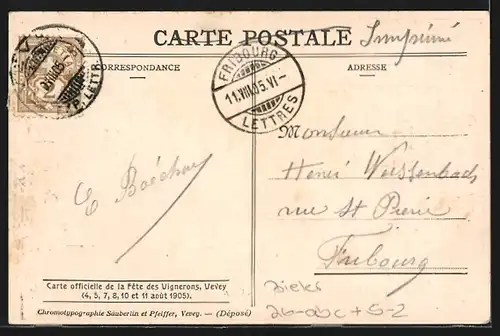 CARTE POSTALE
Imprimé
CORRESPONDANCE
ADRESSE
P. LETTR.
FRIBOURG
11.VIII.05.VI-
LETTRES
Monsieur
Henri Weissenbach
rue St Pierre
Fribourg
E
Carte officielle de la Fête des Vignerons, Vevey
(4, 5, 7, 8, 10 et 11 août 1905).
Chromotypographie Säuberlin et Pfeiffer, Vevey. — (Déposé)